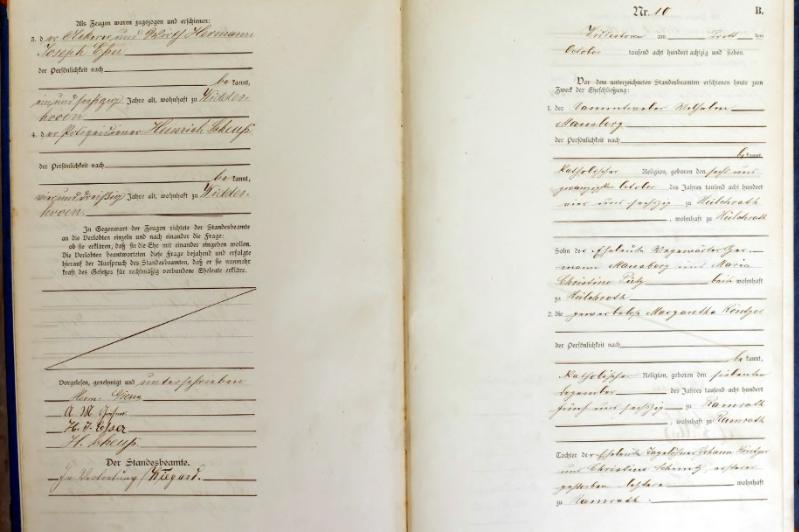 Als Zeugen waren zugezogen und erschienen:
3. der Ackerer und Wirth Hermann
Joseph Esser
der Persönlichkeit nach
be kannt,
ein und sechzig Jahre alt, wohnhaft zu
hoven
4. der Polizeidiener Heinrich Scheuß
der Persönlichkeit nach
be kannt,
vier und dreißig Jahre alt, wohnhaft zu
hoven.
In Gegenwart der Zeugen richtete der Standesbeamte
an die Verlobten einzeln und nach einander die Frage:
ob sie erklären, daß sie die Ehe mit einander eingehen wollen.
Die Verlobten beantworteten diese Frage bejahend und erfolgte
hierauf der Ausspruch des Standesbeamten, daß er sie nunmehr
kraft des Gesetzes für rechtmäßig verbundene Eheleute erkläre.
Vorgelesen, genehmigt und unterschrieben
Herm.
A. M.
H. J. Esser
H. Scheuß
Der Standesbeamte.
In Vertretung Wiegard.
Nr. 10
B.
am den
October tausend acht hundert achtzig und sieben
Vor dem unterzeichneten Standesbeamten erschienen heute zum
Zweck der Eheschließung:
1. der Sammtweber Wilhelm
Mausberg
der Persönlichkeit nach
be kannt,
katholischer Religion, geboren den sechs und
zwanzigsten October des Jahres tausend acht hundert
vier und sechzig zu
, wohnhaft zu
Sohn der Eheleute Her-
mann Mausberg und Maria
Christine Pütz beide wohnhaft
zu
2. die gewerblose Margaretha
der Persönlichkeit nach
be kannt,
katholischer Religion, geboren den siebenten
Dezember des Jahres tausend acht hundert
fünf und sechzig zu Ramrath
, wohnhaft zu Ramrath
Tochter der Eheleute Tagelöhner Johann
und Christine Schmitz, ersterer
gestorben letztere wohnhaft
zu Ramrath.